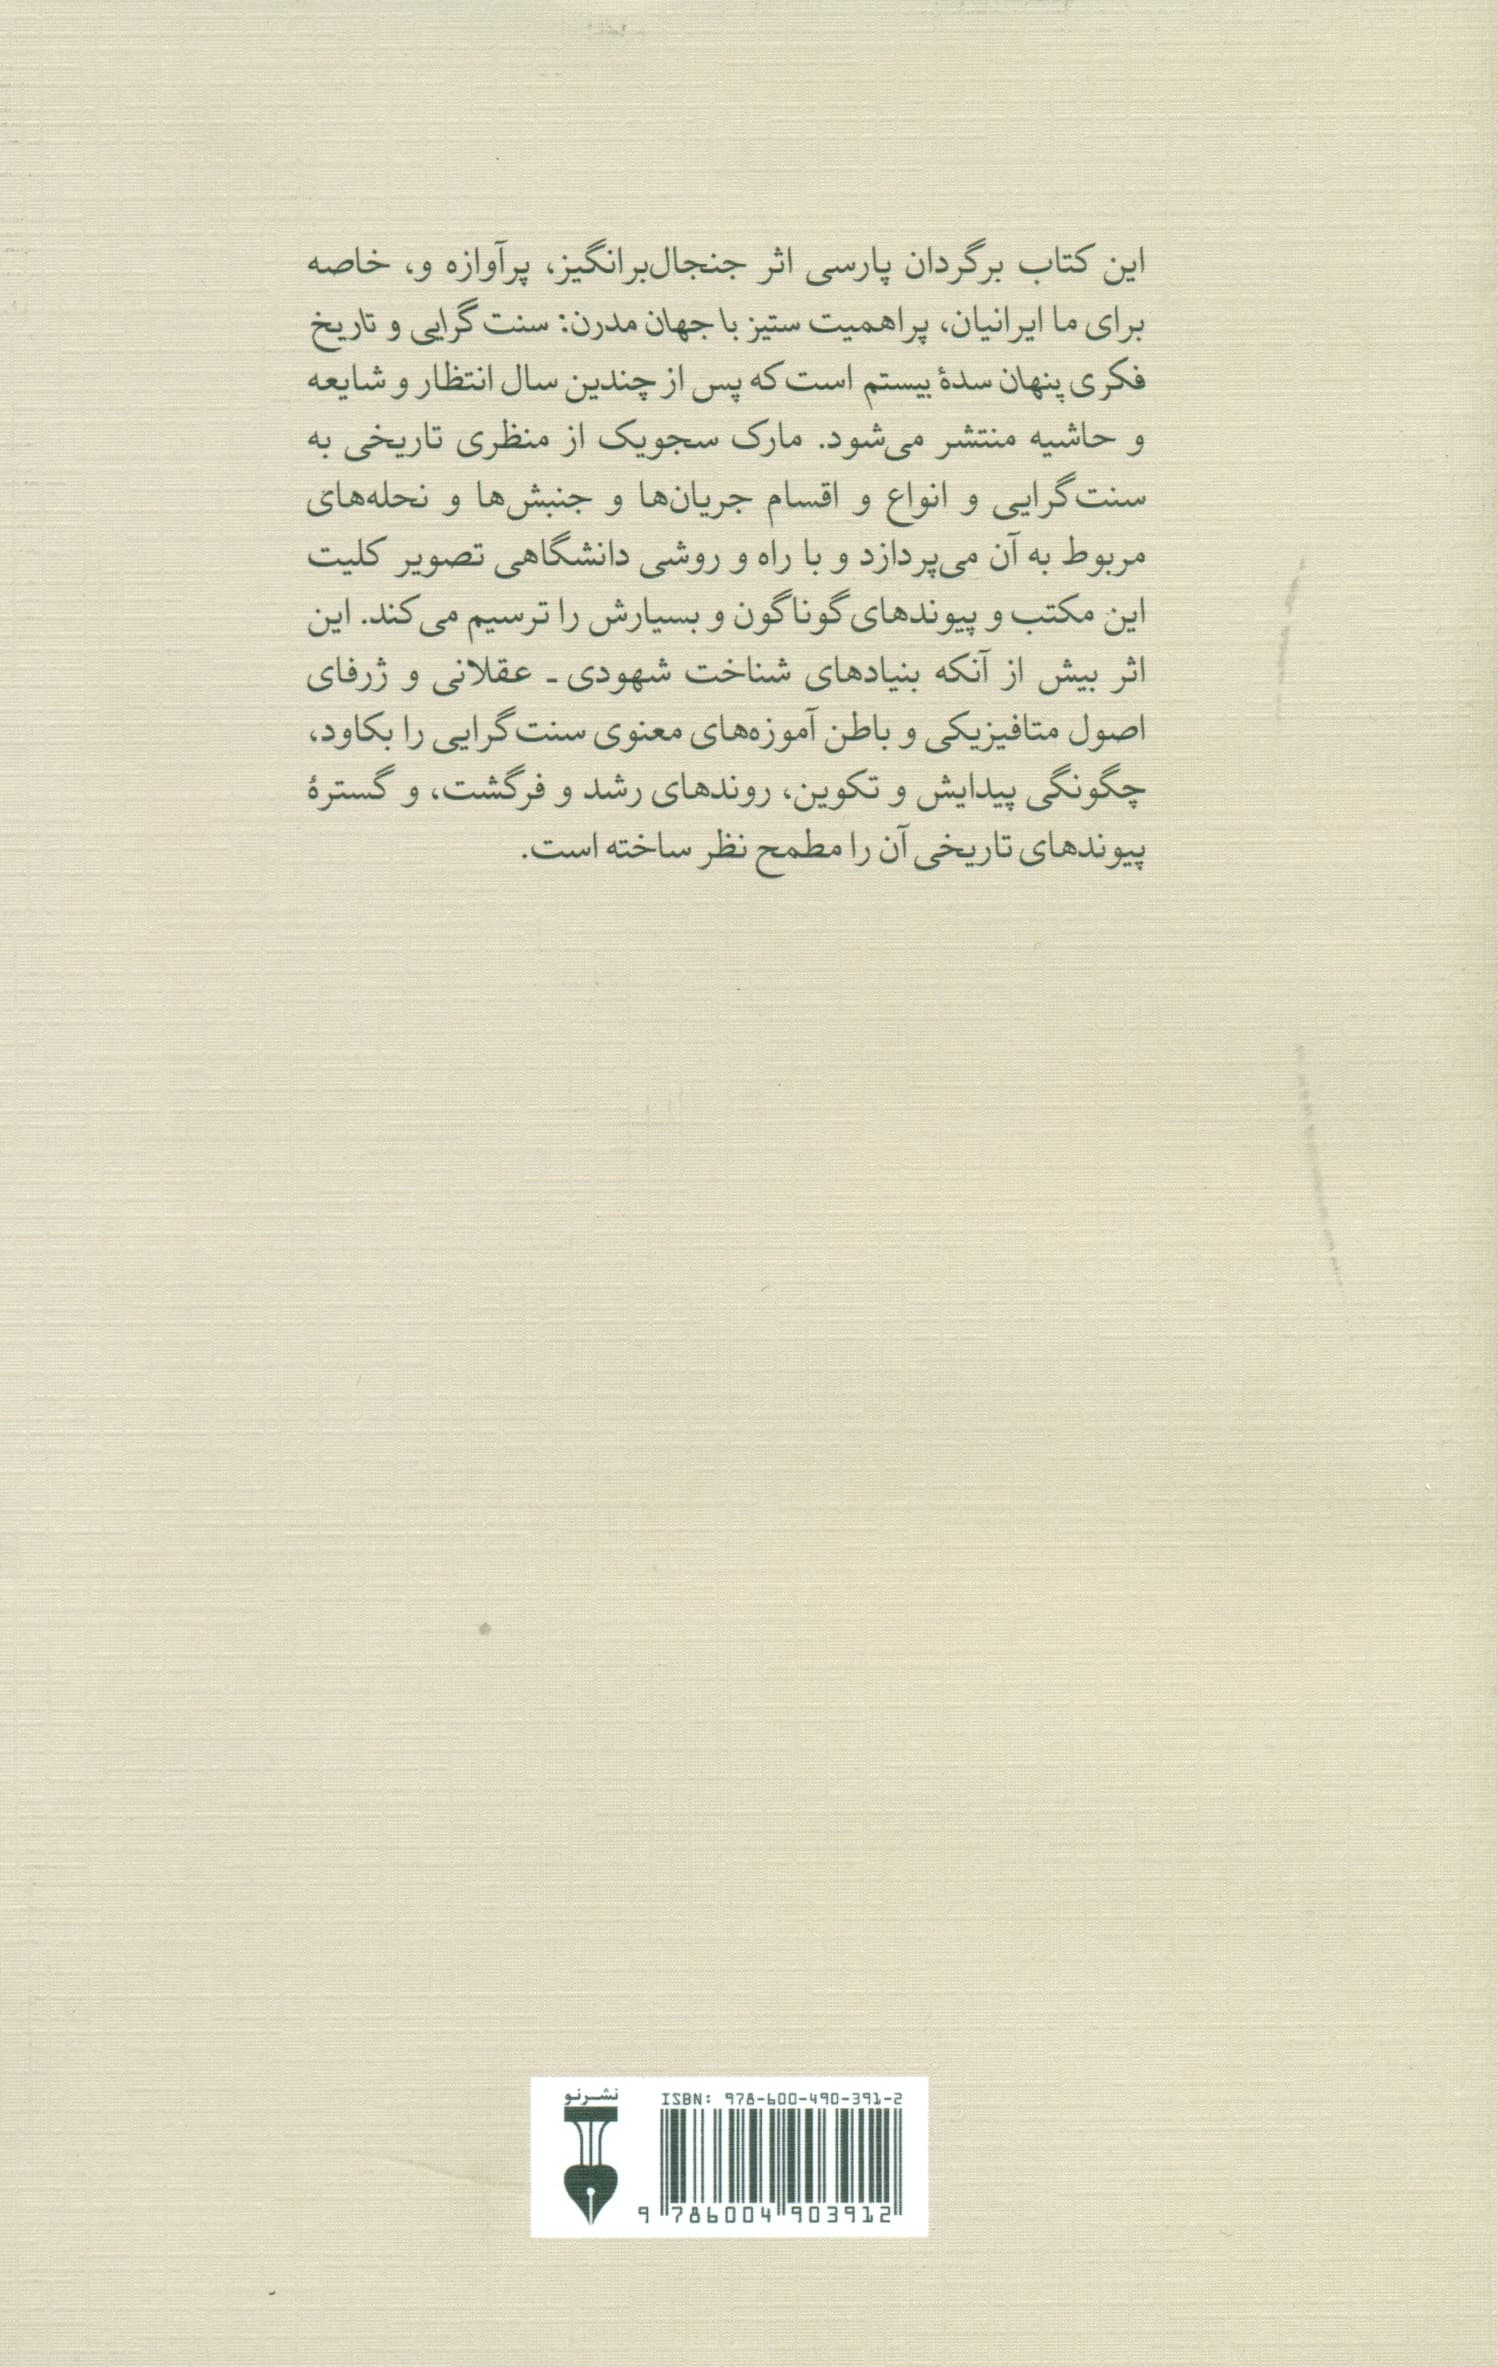 این کتاب برگردان پارسی اثر جنجال‌برانگیز، پرآوازه و، خاصه
برای ما ایرانیان، پراهمیت ستیز با جهان مدرن: سنت‌گرایی و تاریخ
فکری پنهان سدهٔ بیستم است که پس از چندین سال انتظار و شایعه
و حاشیه منتشر می‌شود. مارک سجویک از منظری تاریخی به
سنت‌گرایی و انواع و اقسام جریان‌ها و جنبش‌ها و نحله‌های
مربوط به آن می‌پردازد و با راه و روشی دانشگاهی تصویر کلیت
این مکتب و پیوندهای گوناگون و بسیارش را ترسیم می‌کند. این
اثر بیش از آنکه بنیادهای شناخت شهودی ـ عقلانی و ژرفای
اصول متافیزیکی و باطن آموزه‌های معنوی سنت‌گرایی را بکاود،
چگونگی پیدایش و تکوین، روندهای رشد و فرگشت، و گسترهٔ
پیوندهای تاریخی آن را مطمح نظر ساخته است.
نشرنو
ISBN: 978-600-490-391-2
9 786004 903912